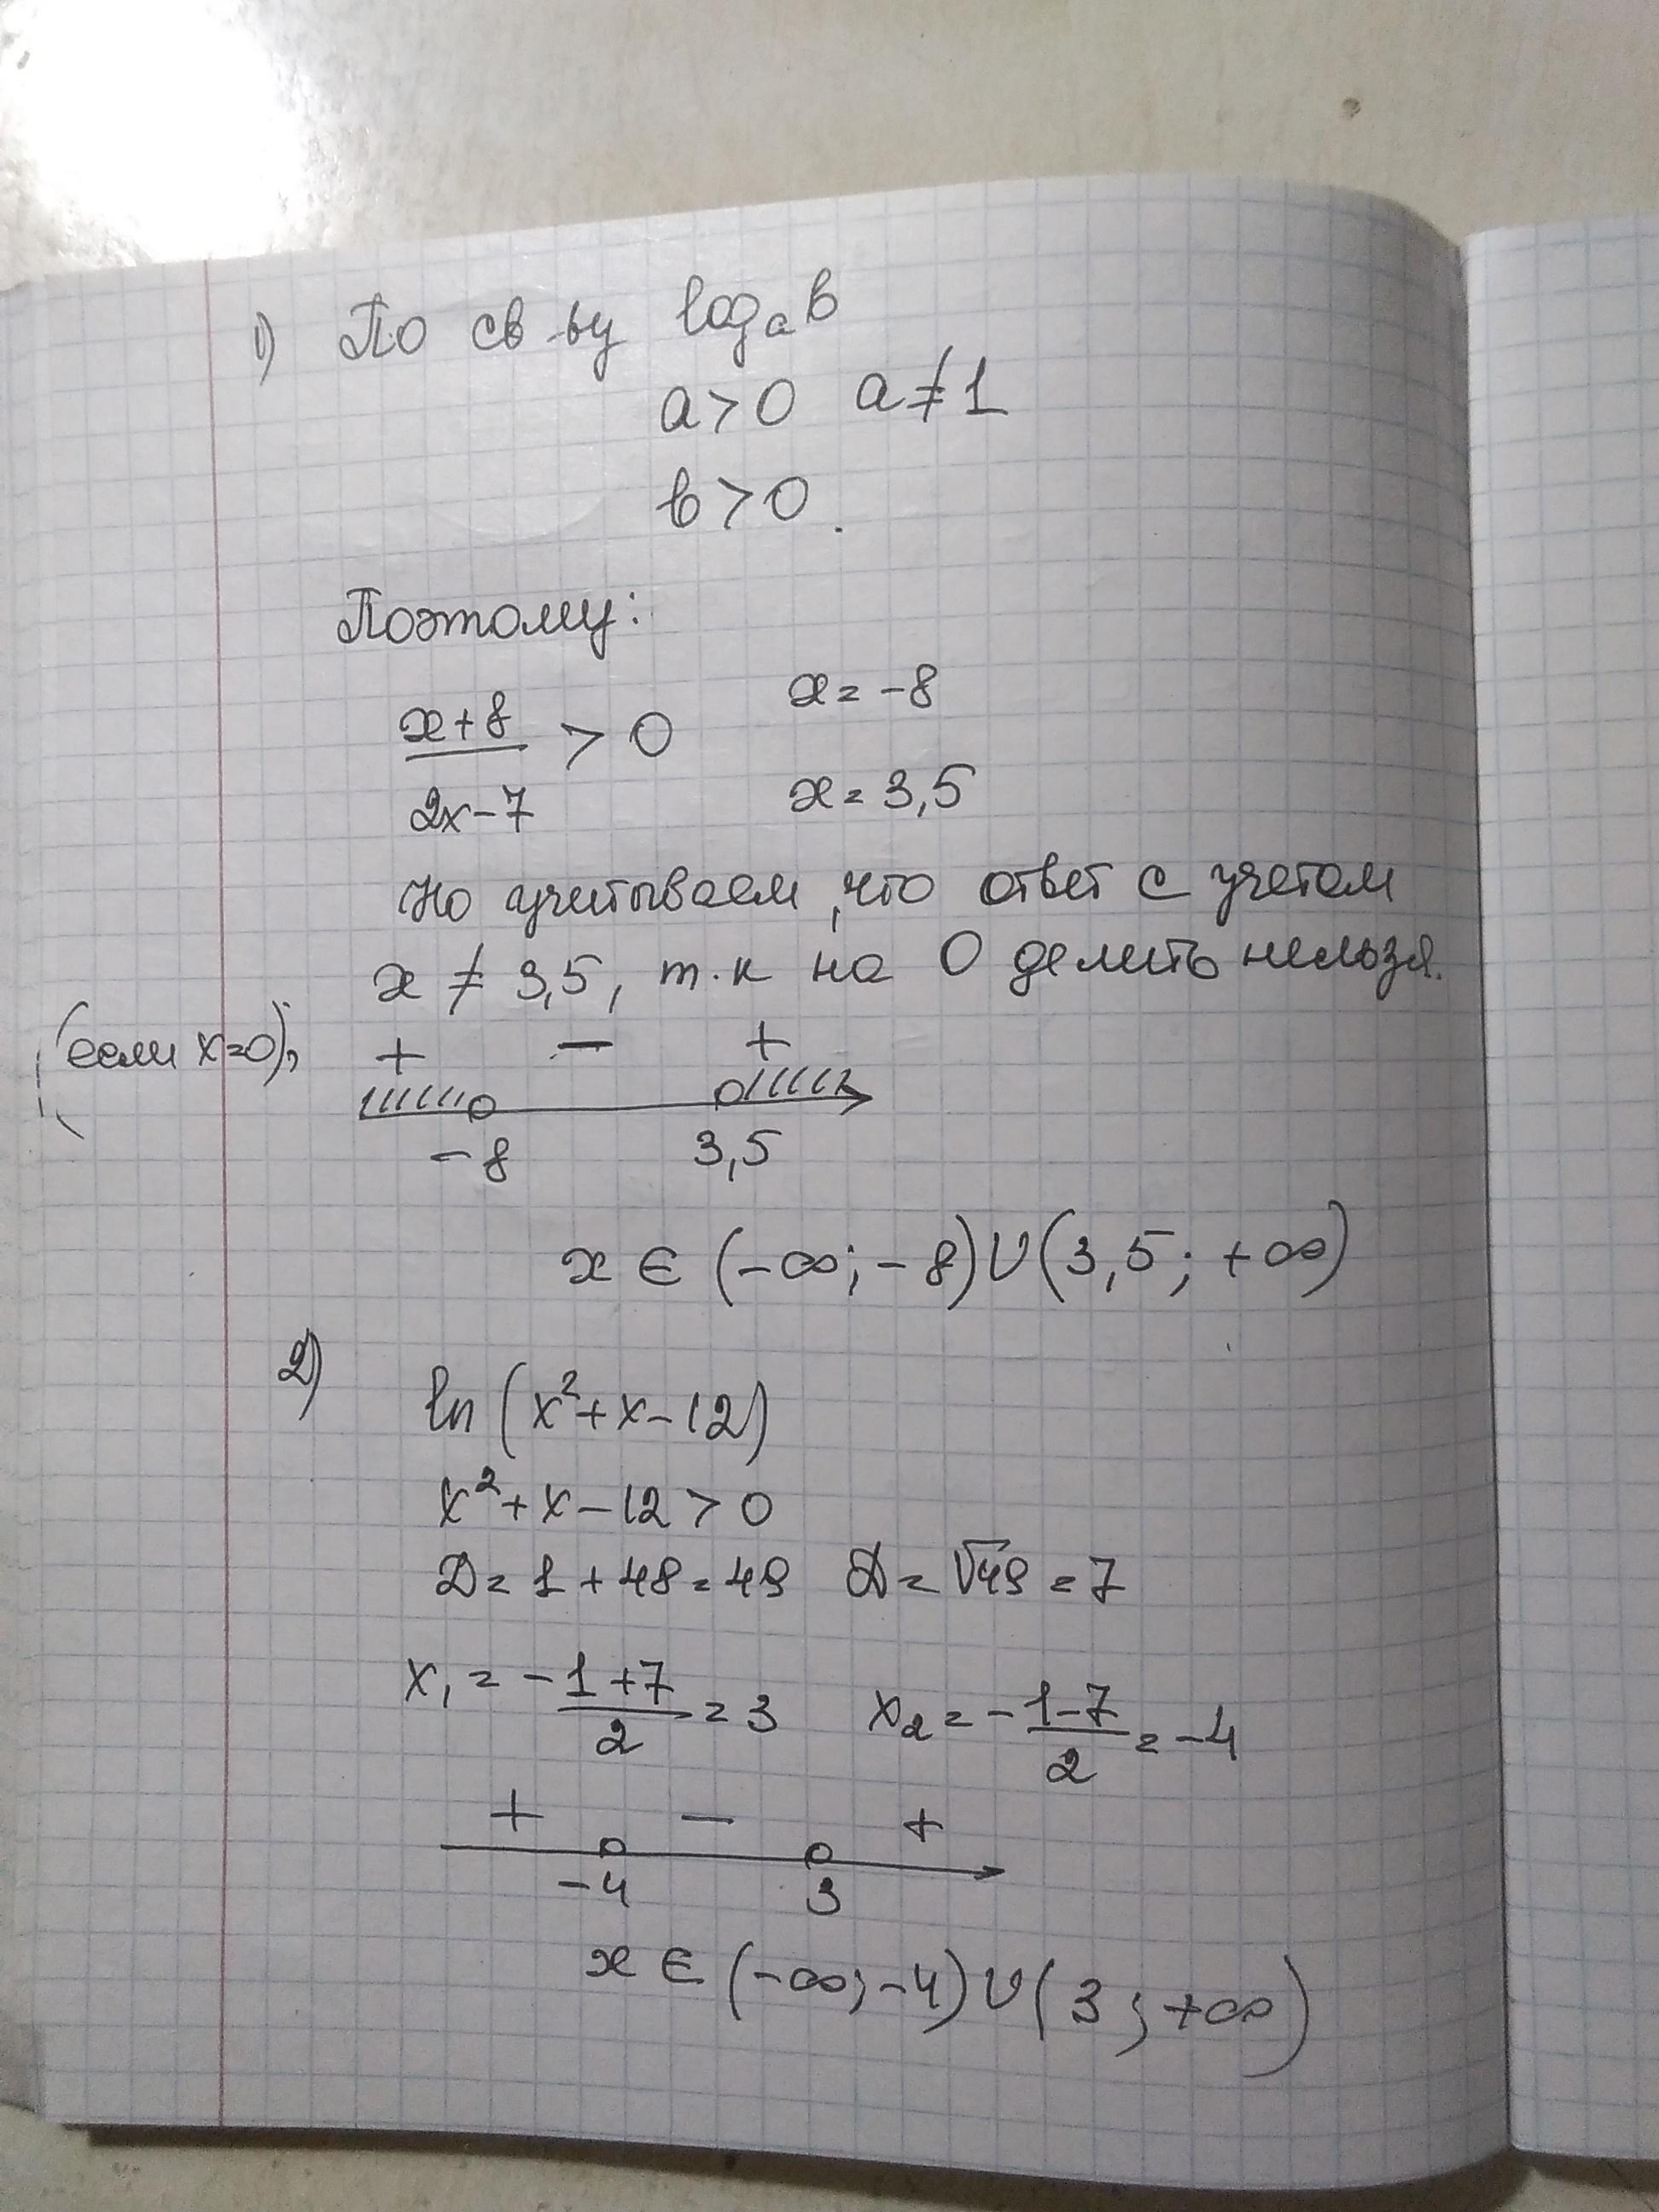 1) По св-ву logₐ b
a > 0 a ≠ 1
b > 0.
Поэтому:
(x+8)/(2x-7) > 0 x = -8
x = 3,5
Но учитываем, что ответ с учетом
x ≠ 3,5, т.к на 0 делить нельзя.
(если x=0), + − +
-8 3,5
x ∈ (-∞; -8) ∪ (3,5; +∞)
2)
ln (x²+x-12)
x²+x-12 > 0
D = 1 + 48 = 49 D = √49 = 7
x₁ = -(1+7)/2 = 3 x₂ = -(1-7)/2 = -4
+ − +
-4 3
x ∈ (-∞; -4) ∪ (3; +∞)